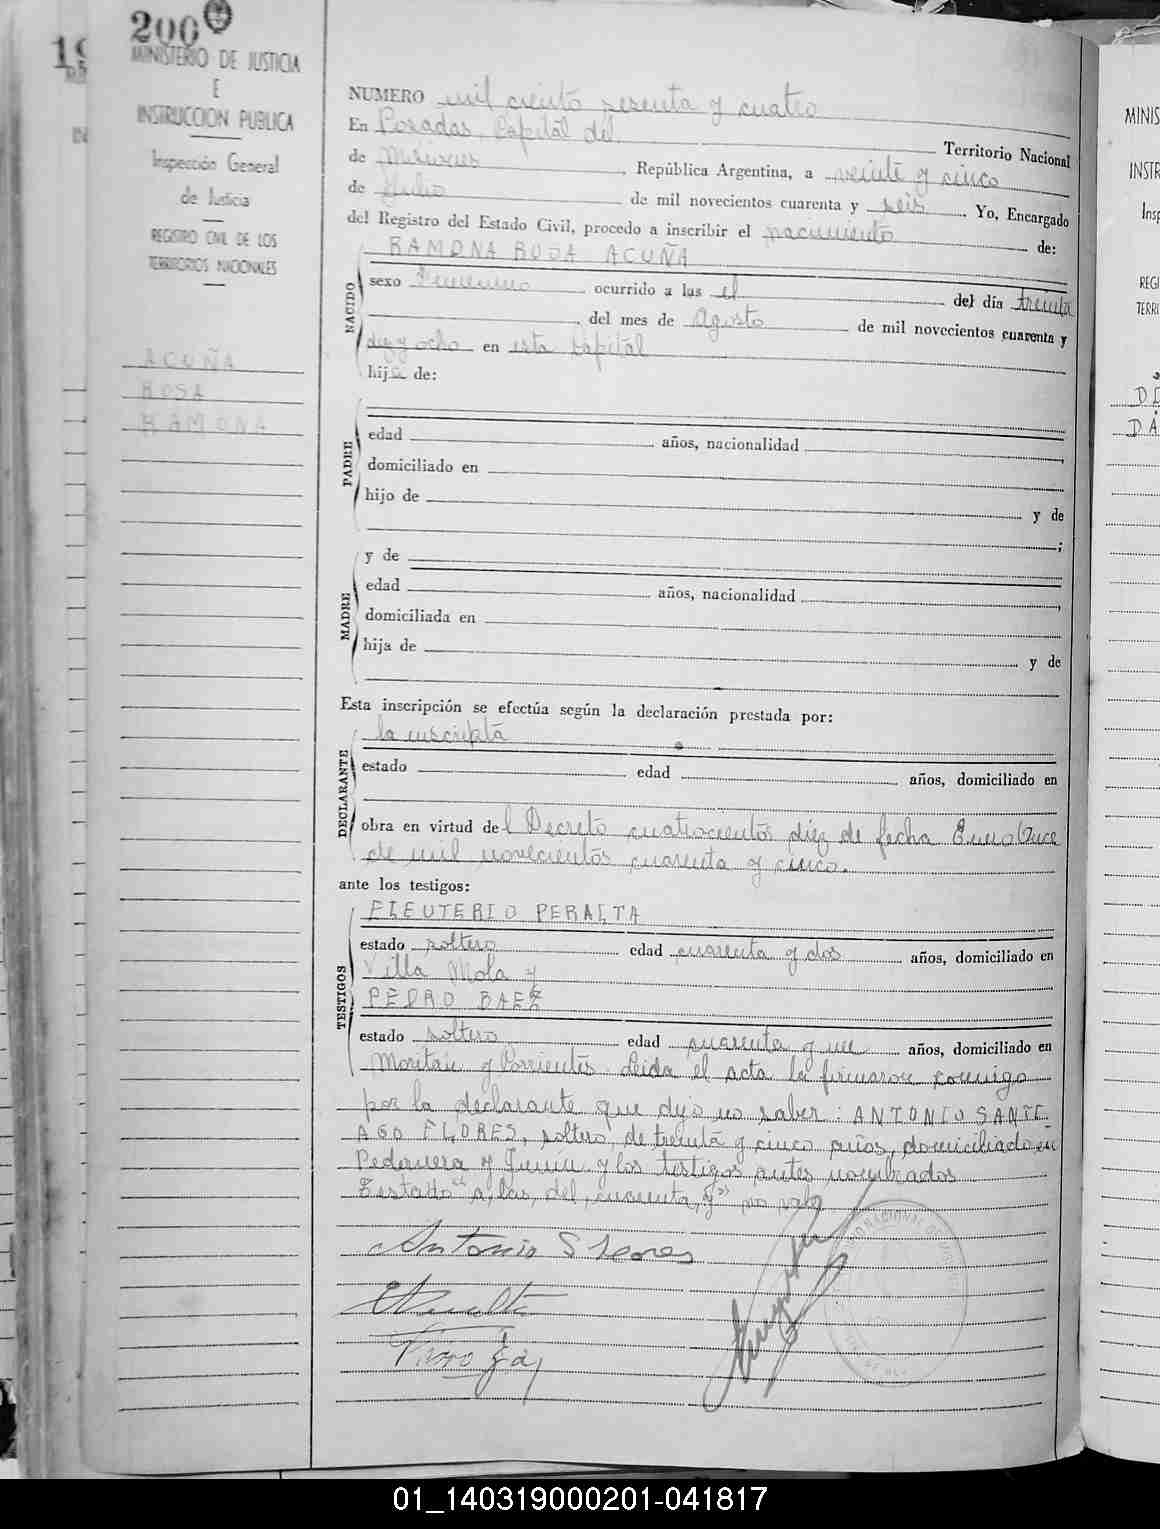 200
MINISTERIO DE JUSTICIA
E
INSTRUCCION PUBLICA
Inspección General
de Justicia
REGISTRO CIVIL DE LOS
TERRITORIOS NACIONALES
ACUÑA
ROSA
RAMONA
NUMERO mil ciento sesenta y cuatro
En Posadas, Capital del Territorio Nacional
de Misiones, República Argentina, a veinte y cinco
de Julio de mil novecientos cuarenta y seis Yo, Encargado
del Registro del Estado Civil, procedo a inscribir el nacimiento de:
RAMONA ROSA ACUÑA
NACIDO
sexo Femenino ocurrido a las el del día treinta
del mes de Agosto de mil novecientos cuarenta y
diez y ocho en esta Capital
hija de:
PADRE
edad años, nacionalidad
domiciliado en
hijo de y de
;
MADRE
y de
edad años, nacionalidad
domiciliada en
hija de y de
Esta inscripción se efectúa según la declaración prestada por:
la inscripta
DECLARANTE
estado edad años, domiciliado en
obra en virtud del Decreto cuatrocientos diez de fecha Enero Once
de mil novecientos cuarenta y cinco.
ante los testigos:
ELEUTERIO PERALTA
TESTIGOS
estado soltero edad cuarenta y dos años, domiciliado en
Villa Mola y
PEDRO BAEZ
estado soltero edad cuarenta y un años, domiciliado en
y Corrientes. Leida el acta la firmaron conmigo
por la declarante que dijo no saber: ANTONIO SANTI
AGO FLORES, soltero, de treinta y cinco años, domiciliado en
Pedanera y Junin y los testigos antes nombrados
Testado "a, las, del, cuarenta, y" no vale
Antonio S Flores
MINIS
INSTR
Insp
REGI
TERRI
01_140319000201-041817